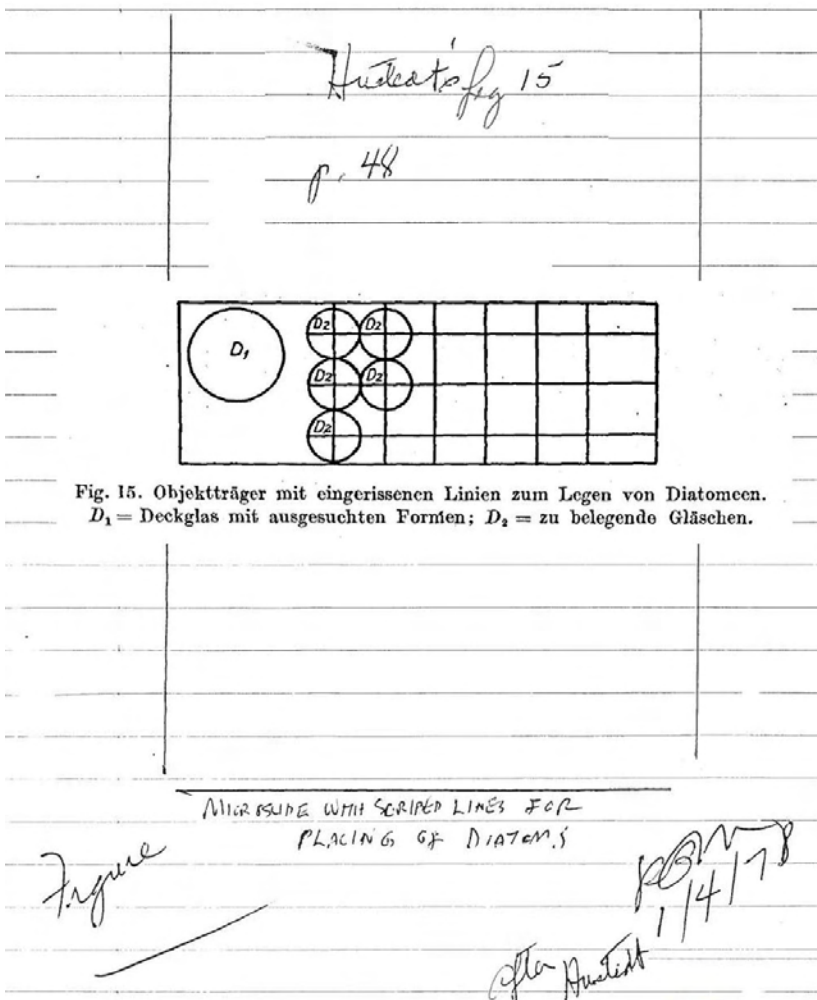 Hustedt's fig 15
p. 48
D₁
D₂ D₂
D₂ D₂
D₂
Fig. 15. Objektträger mit eingerissenen Linien zum Legen von Diatomeen.
D₁ = Deckglas mit ausgesuchten Formen; D₂ = zu belegende Gläschen.
MICROSLIDE WITH SCRIBED LINES FOR
PLACING OF DIATOMS
Figure
1/4/78
after Hustedt